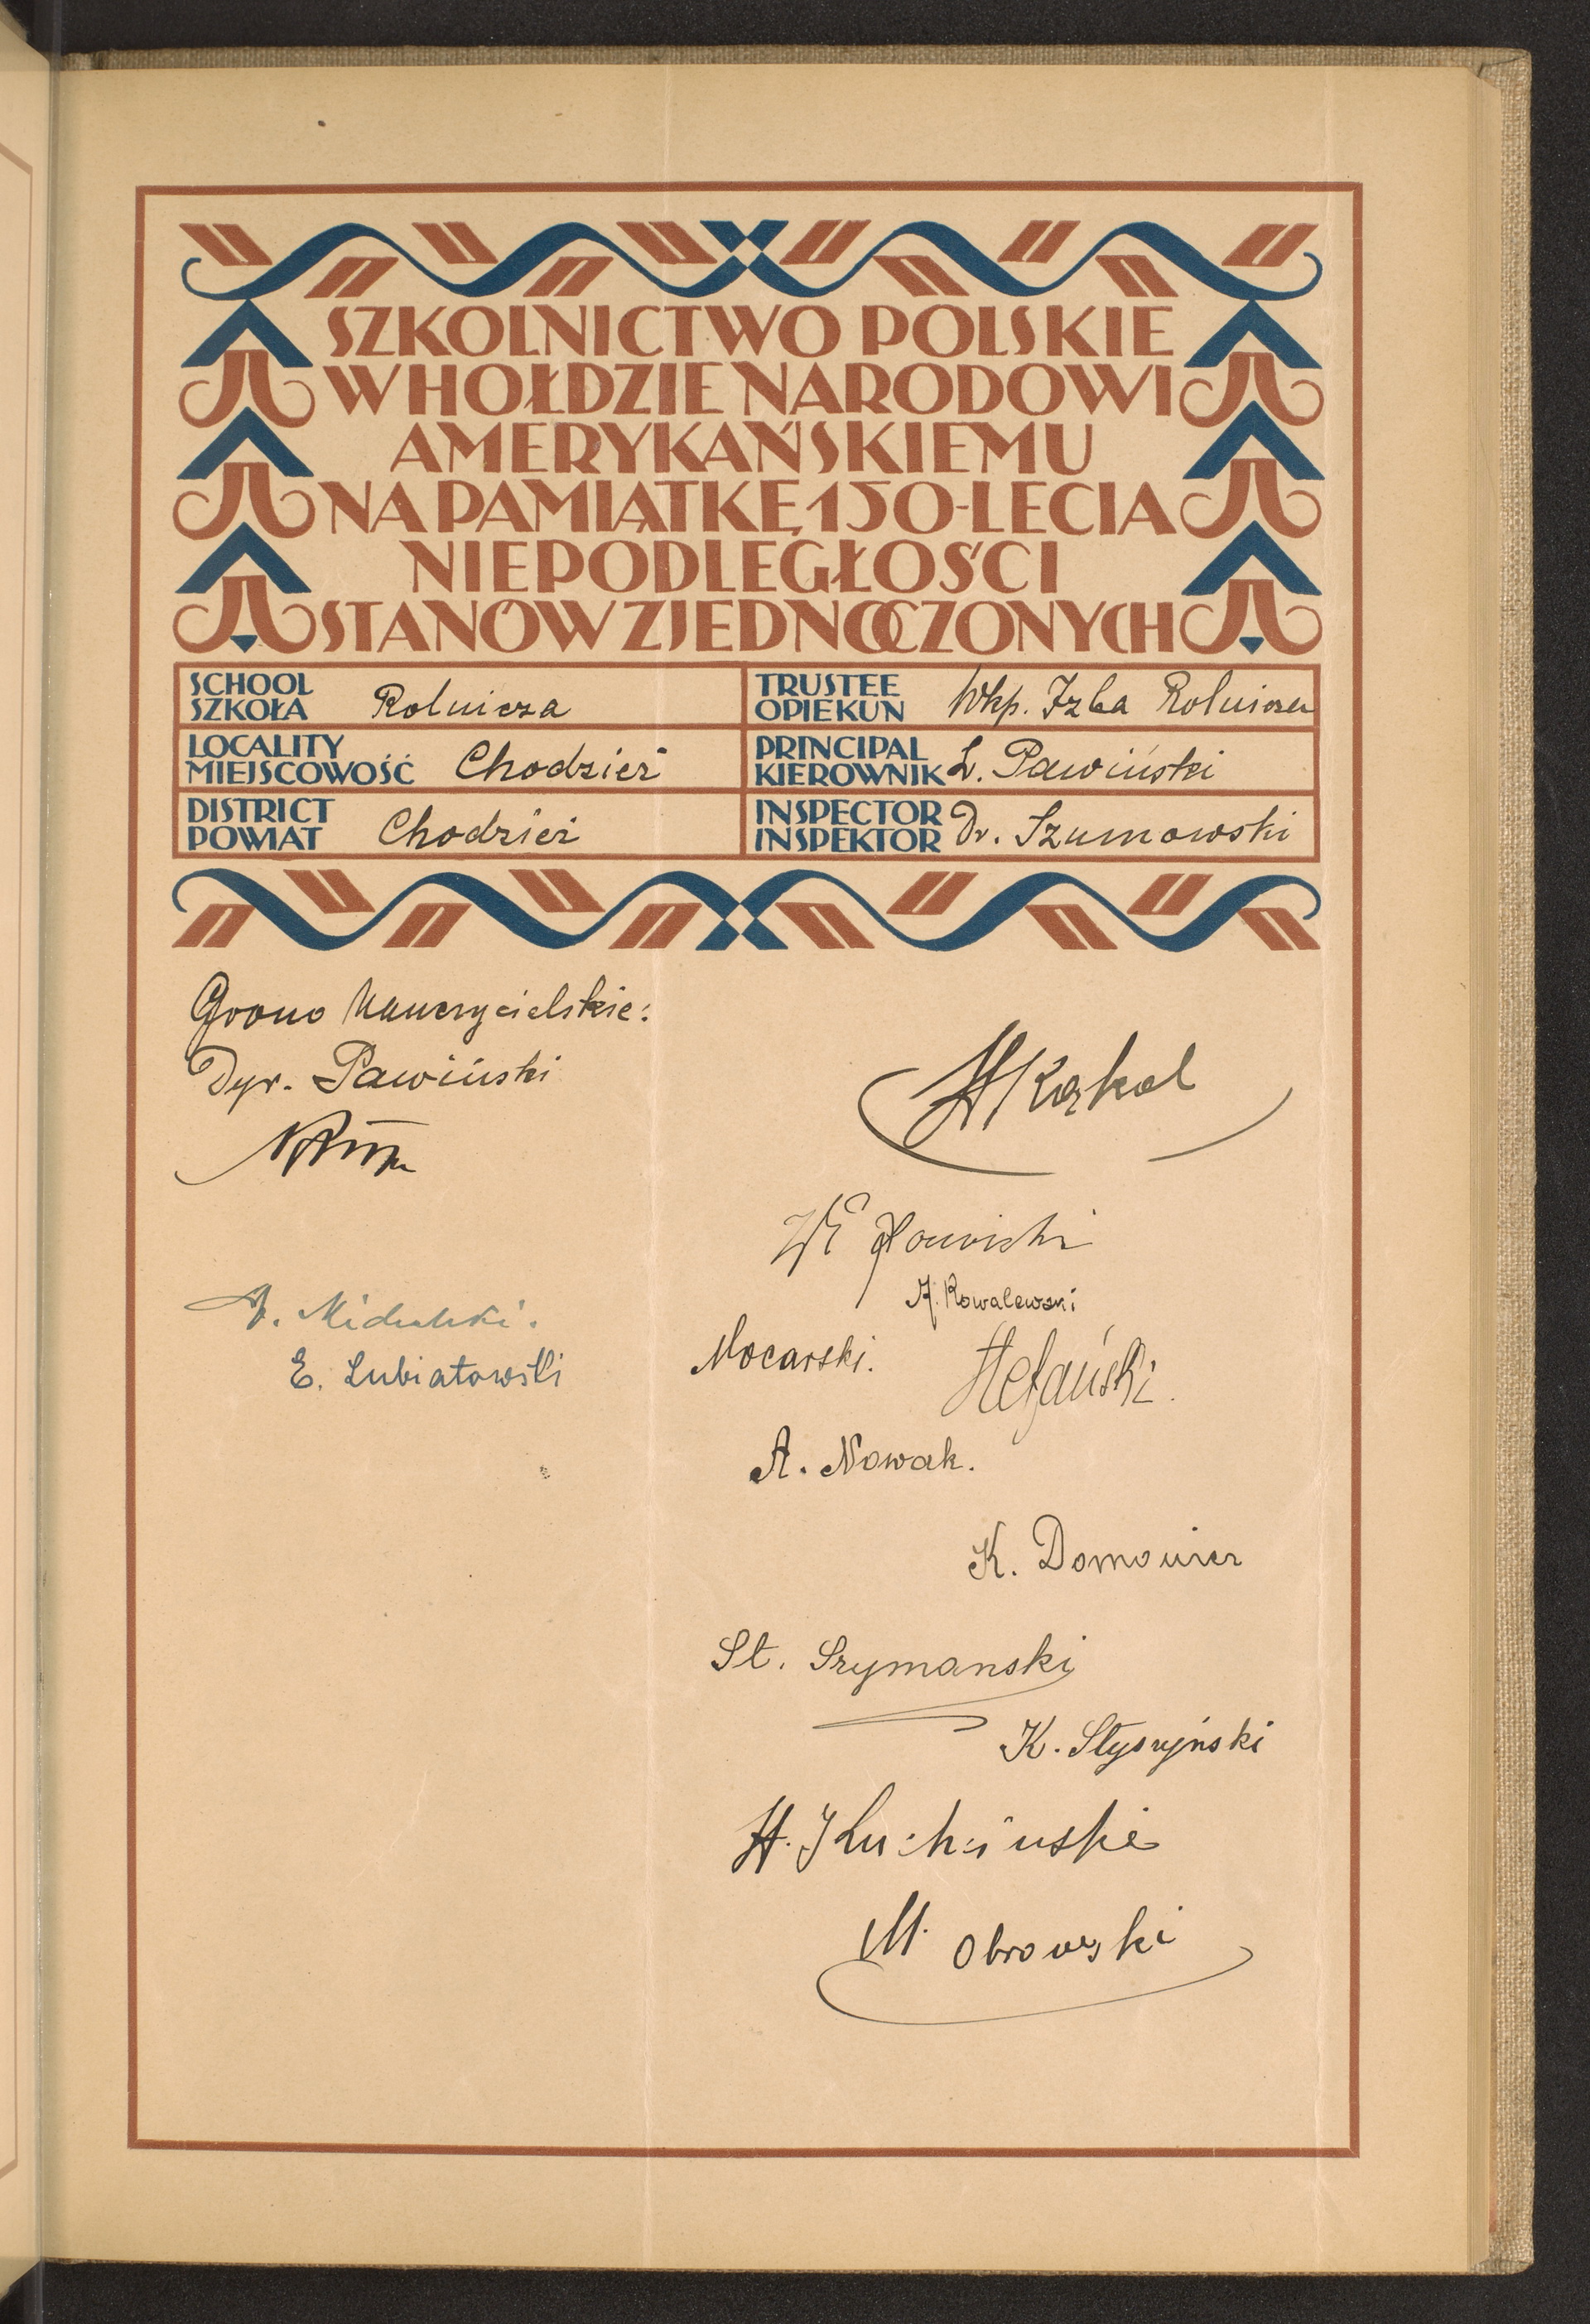 SZKOLNICTWO POLSKIE
W HOŁDZIE NARODOWI
AMERYKAŃSKIEMU
NA PAMIĄTKĘ 150-LECIA
NIEPODLEGŁOŚCI
STANÓW ZJEDNOCZONYCH
SCHOOL
SZKOŁA Rolnicza
LOCALITY
MIEJSCOWOŚĆ Chodzież
DISTRICT
POWIAT Chodzież
TRUSTEE
OPIEKUN Wkp. Izba Rolnicza
PRINCIPAL
KIEROWNIK L. Pawiński
INSPECTOR
INSPEKTOR Dr. Szumowski
Grono Nauczycielskie:
Dyr. Pawiński
E. Lubiatowski
Kąkol
A. Kowalewski
Mocarski.
Stefański.
A. Nowak.
K.
St. Szymanski
K. Styszyński
M. Obrowski